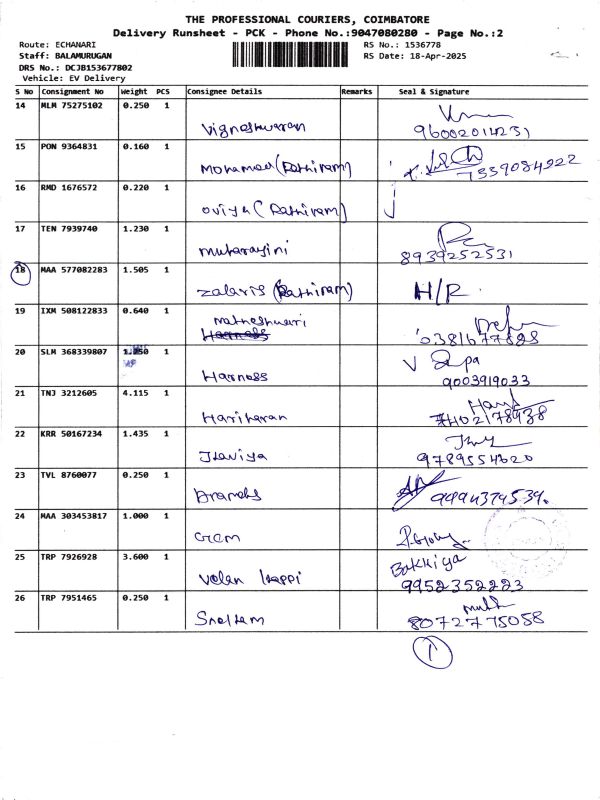 THE PROFESSIONAL COURIERS, COIMBATORE
Delivery Runsheet - PCK - Phone No.:9047080280 - Page No.:2
Route: ECHANARI
RS No.: 1536778
Staff: BALAMURUGAN
RS Date: 18-Apr-2025
DRS No.: DCJB153677802
Vehicle: EV Delivery
S No Consignment No Weight PCS Consignee Details Remarks Seal & Signature
14 MLM 75275102 0.250 1
Vigneshwaran 96002014231
15 PON 9364831 0.160 1
Mohamed (Rathiram) 7339084222
16 RMD 1676572 0.220 1
Oviya (Rathiram)
17 TEN 7939740 1.230 1
Mutharayini 8939252531
18 MAA 577082283 1.505 1
Zalaris (Rathiram) H/R
19 IXM 508122833 0.640 1
Matheshwari
Harness
20 SLM 368339807 1.250 1
Harness 9003919033
21 TNJ 3212605 4.115 1
Hariharan
22 KRR 50167234 1.435 1
9789554620
23 TVL 8760077 0.250 1
24 MAA 303453817 1.000 1
25 TRP 7926928 3.600 1
Bakkiya
Velan 9952352223
26 TRP 7951465 0.250 1
8072775058
1